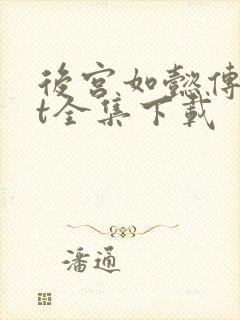 後宮如懿傳
t全集下載
潘通